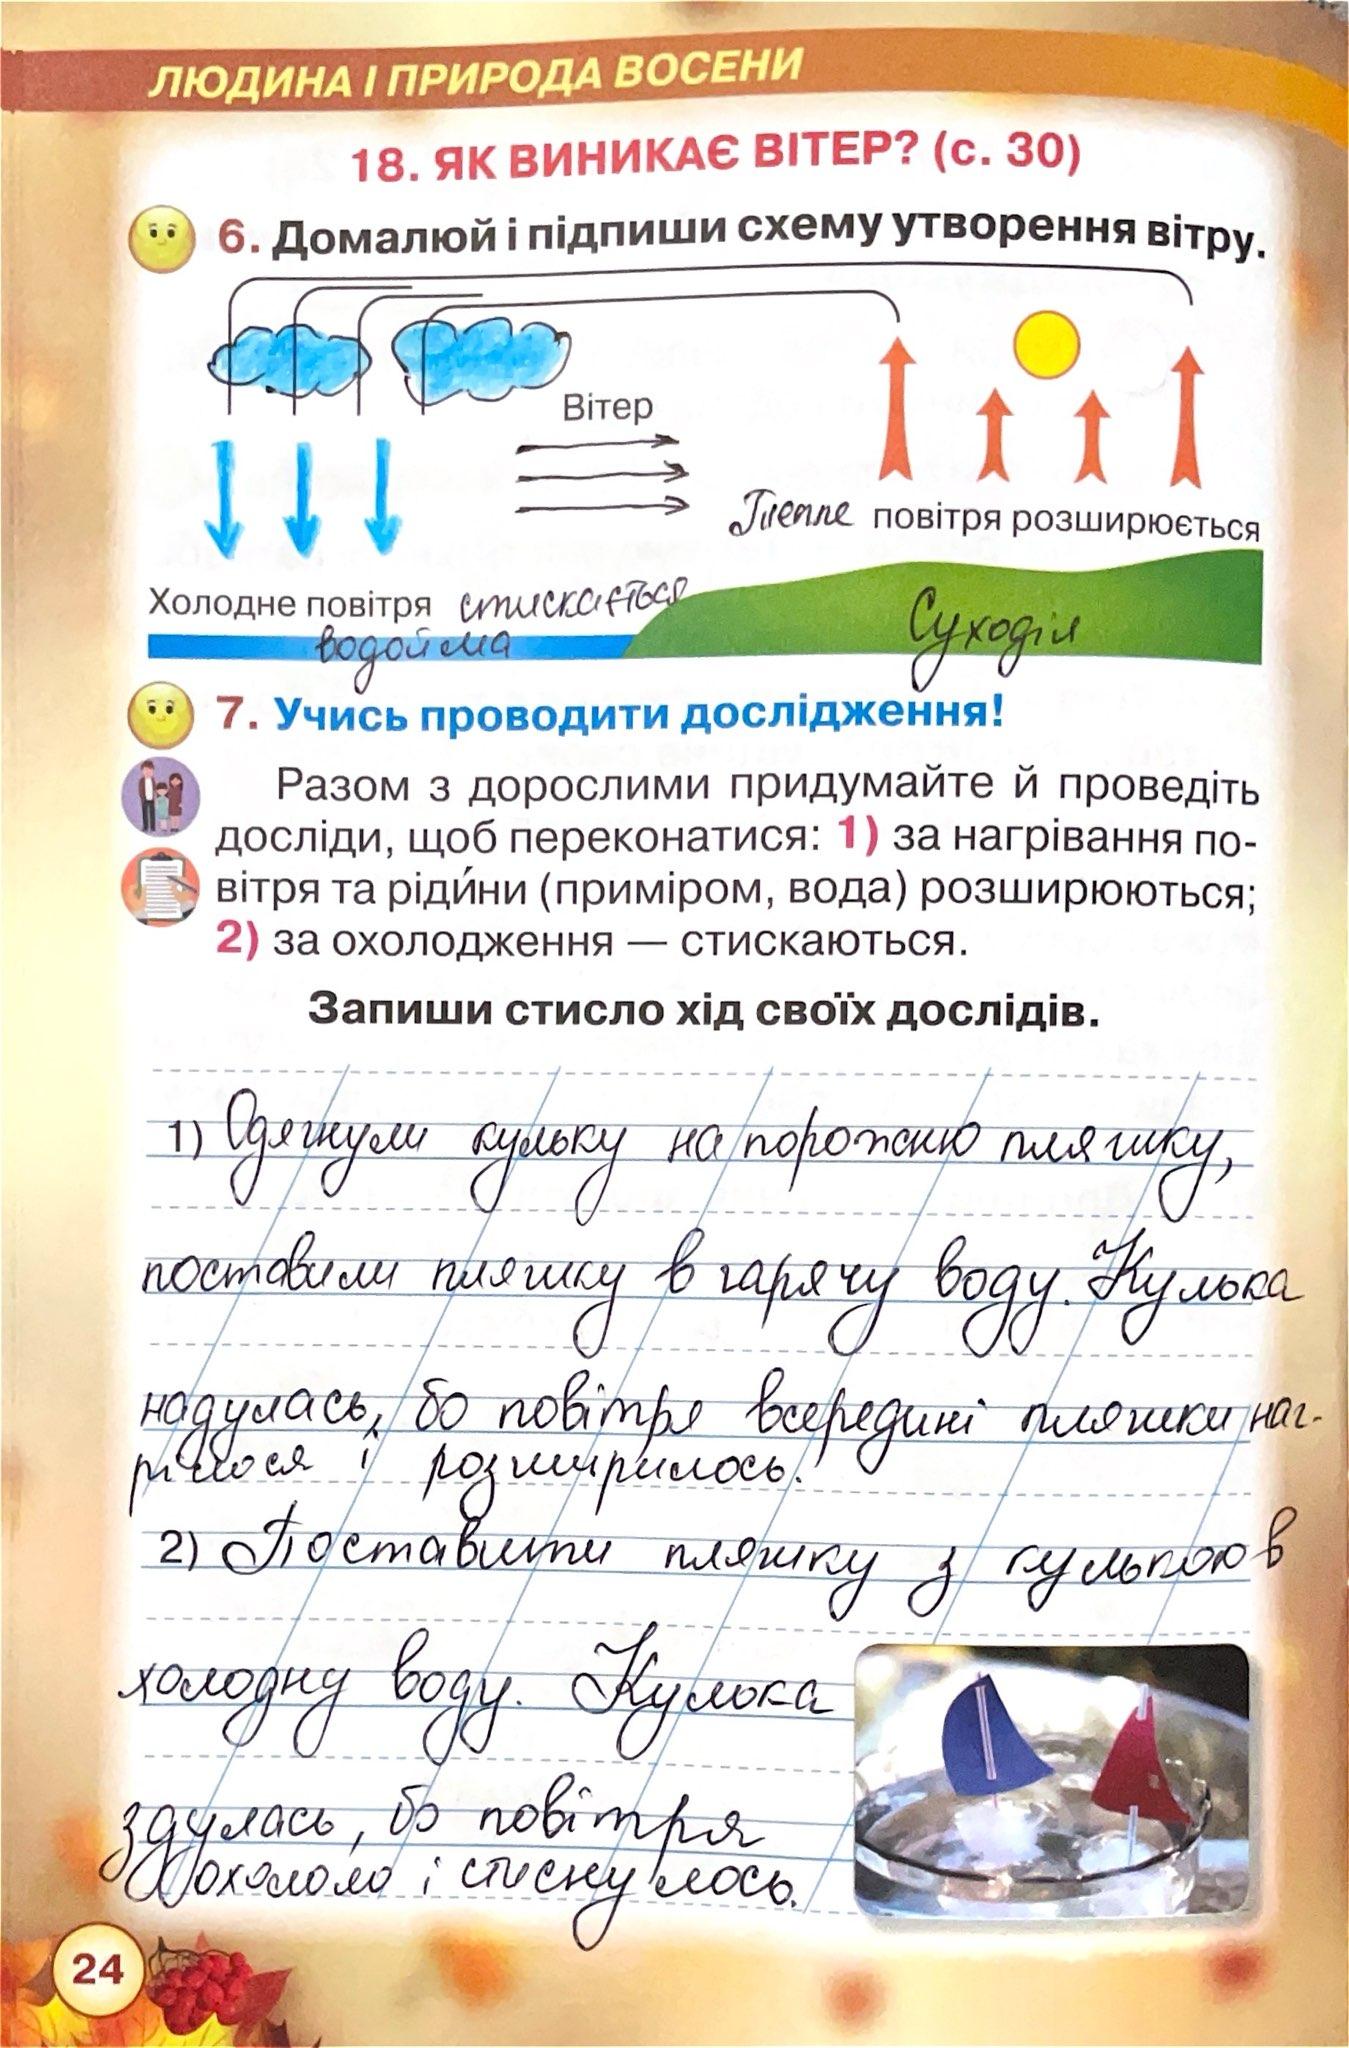 ЛЮДИНА І ПРИРОДА ВОСЕНИ
18. ЯК ВИНИКАЄ ВІТЕР? (с. 30)
6. Домалюй і підпиши схему утворення вітру.
Вітер
Тепле повітря розширюється
Холодне повітря стискається
водойма
Суходіл
7. Учись проводити дослідження!
Разом з дорослими придумайте й проведіть
досліди, щоб переконатися: 1) за нагрівання по-
вітря та ріди́ни (приміром, вода) розширюються;
2) за охолодження — стискаються.
Запиши стисло хід своїх дослідів.
1) Одягнули кульку на порожню пляшку,
поставили пляшку в гарячу воду. Кулька
надулась, бо повітря всередині пляшки наг-
рілося і розширилось.
2) Поставити пляшку з кулькою в
холодну воду. Кулька
здулась, бо повітря
охололо і стиснулось.
24